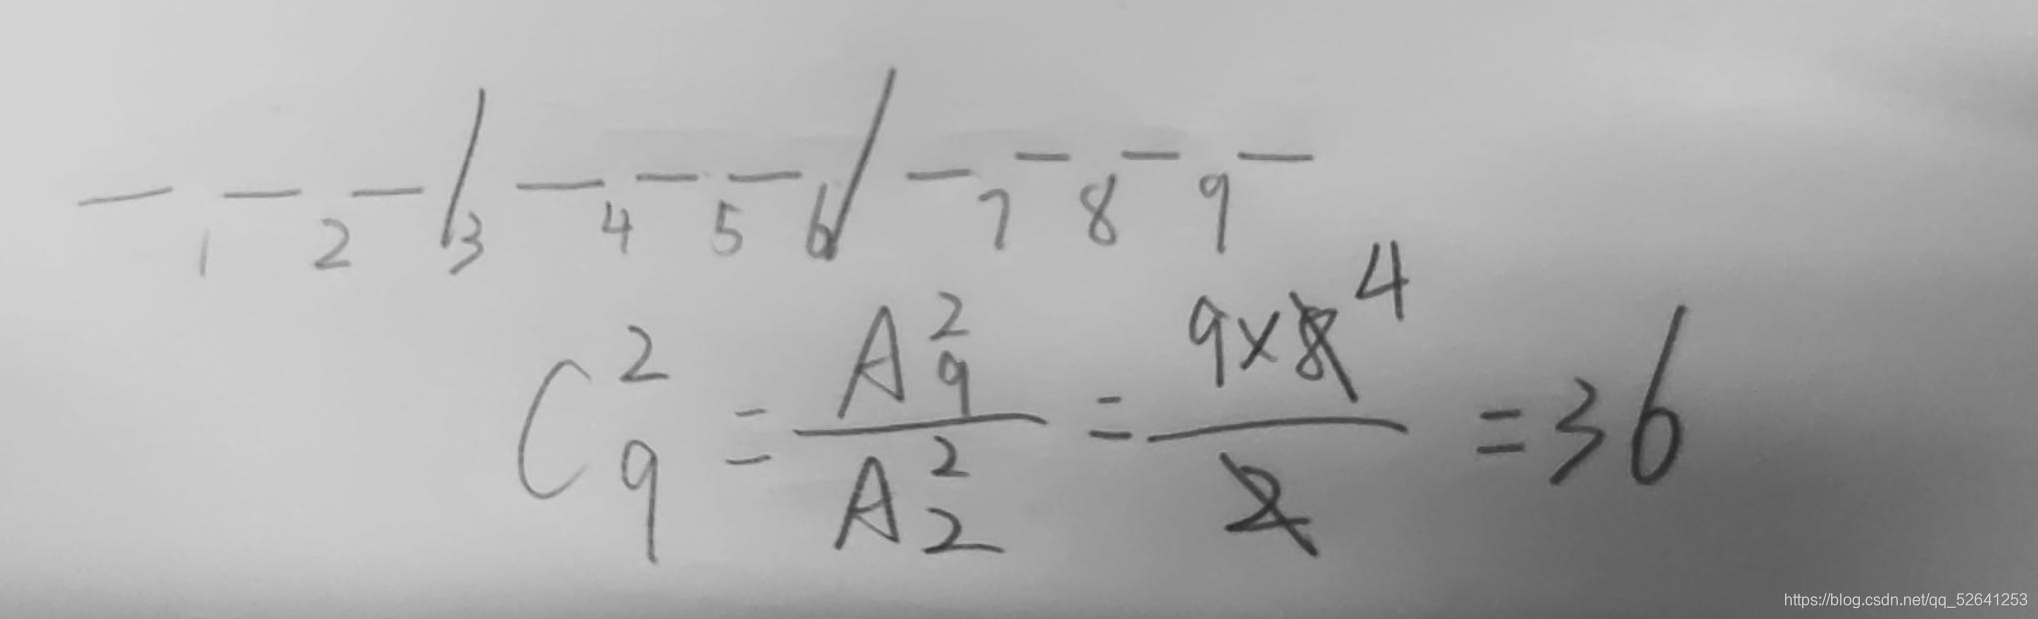 _ 1 _ 2 _ / 3 _ 4 _ 5 _ 6 / _ 7 _ 8 _ 9 _
C₉² = A₉² / A₂² = 9×8 4 / 2 = 36
https://blog.csdn.net/qq_52641253